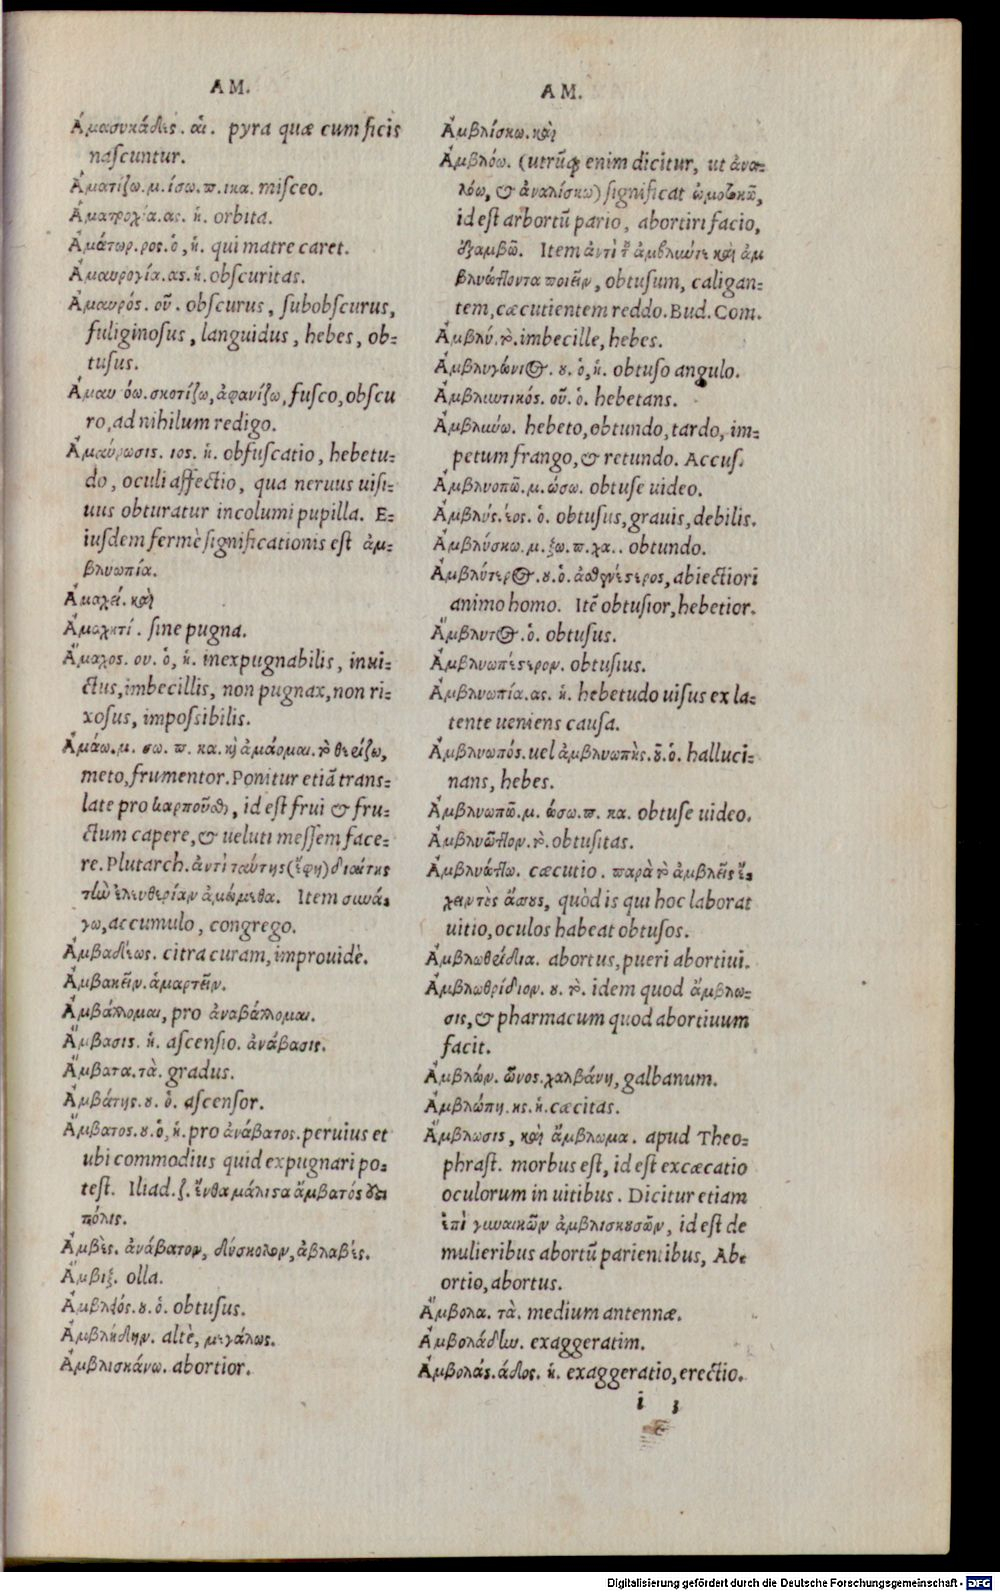 AM.
Ἀμασυκάδες. αἱ. pyra quæ cum ficis
nascuntur.
Ἀματίζω. μ. ίσω. π. ικα. misceo.
Ἀματροχία. ας. ἡ. orbita.
Ἀμάτωρ. ρος. ὁ, ἡ. qui matre caret.
Ἀμαυρογία. ας. ἡ. obscuritas.
Ἀμαυρός. οῦ. obscurus, subobscurus,
fuliginosus, languidus, hebes, ob-
tusus.
Ἀμαυρόω. σκοτίζω, ἀφανίζω, fusco, obscu
ro, ad nihilum redigo.
Ἀμαύρωσις. ιος. ἡ. obfuscatio, hebetu-
do, oculi affectio, qua neruus uisi-
uus obturatur incolumi pupilla. E-
iusdem fermè significationis est ἀμ-
βλυωπία.
Ἀμαχεί. καὶ
Ἀμαχητί. sine pugna.
Ἄμαχος. ου. ὁ, ἡ. inexpugnabilis, inui-
ctus, imbecillis, non pugnax, non ri-
xosus, impossibilis.
Ἀμάω. μ. σω. π. κα. κὶ ἀμάομαι. τὸ θερίζω,
meto, frumentor. Ponitur etiã trans-
late pro καρποῦσθαι, id est frui & fru-
ctum capere, & ueluti messem face-
re. Plutarch. ἀντὶ ταύτης (ἔφη) διαίτης
τὴν ἐλευθερίαν ἀμώμεθα. Item συνά-
γω, accumulo, congrego.
Ἀμβαδέως. citra curam, improuidè.
Ἀμβακεῖν. ἁμαρτεῖν.
Ἀμβάλλομαι, pro ἀναβάλλομαι.
Ἄμβασις. ἡ. ascensio. ἀνάβασις.
Ἄμβατα. τὰ. gradus.
Ἀμβάτης. ου. ὁ. ascensor.
Ἄμβατος. ου. ὁ, ἡ. pro ἀνάβατος. peruius et
ubi commodius quid expugnari po-
test. Iliad. ζ. ἔνθα μάλιστα ἄμβατός ἐστι
πόλις.
Ἀμβὲς. ἀνάβατον, δύσκολον, ἀβλαβές.
Ἄμβιξ. olla.
Ἀμβλεός. ου. ὁ. obtusus.
Ἀμβλήδην. altè, μεγάλως.
Ἀμβλισκάνω. abortior.
AM.
Ἀμβλίσκω. καὶ
Ἀμβλόω. (utrũq; enim dicitur, ut ἀνα-
λόω, & ἀναλίσκω) significat ὠμοτοκῶ,
id est arbortũ pario, abortiri facio,
ἐξαμβῶ. Item ἀντὶ τοῦ ἀμβλυώττειν καὶ ἀμ
βλυώττοντα ποιεῖν, obtusum, caligan-
tem, cæcutientem reddo. Bud. Com.
Ἀμβλύ. τὸ. imbecille, hebes.
Ἀμβλυγώνιος. ου. ὁ, ἡ. obtuso angulo.
Ἀμβλυντικός. οῦ. ὁ. hebetans.
Ἀμβλύνω. hebeto, obtundo, tardo, im-
petum frango, & retundo. Accus.
Ἀμβλυοπῶ. μ. ώσω. obtuse uideo.
Ἀμβλύς. έος. ὁ. obtusus, grauis, debilis.
Ἀμβλύσκω. μ. ξω. π. χα.. obtundo.
Ἀμβλύτερος. ου. ὁ. ἀσθενέστερος, abiectiori
animo homo. Itẽ obtusior, hebetior.
Ἄμβλυτος. ὁ. obtusus.
Ἀμβλυωπέστερον. obtusius.
Ἀμβλυωπία. ας. ἡ. hebetudo uisus ex la-
tente ueniens causa.
Ἀμβλυωπός. uel ἀμβλυωπὴς. οῦ. ὁ. halluci-
nans, hebes.
Ἀμβλυωπῶ. μ. ώσω. π. κα. obtuse uideo.
Ἀμβλυῶττον. τὸ. obtusitas.
Ἀμβλυώττω. cæcutio. παρὰ τὸ ἀμβλεῖς ἔ-
χειν τὲς ἄπους, quòd is qui hoc laborat
uitio, oculos habeat obtusos.
Ἀμβλωθρίδια. abortus, pueri abortiui.
Ἀμβλωθρίδιον. ου. τὸ. idem quod ἄμβλω-
σις, & pharmacum quod abortiuum
facit.
Ἀμβλών. ῶνος. χαλβάνη, galbanum.
Ἀμβλώπη. ης. ἡ. cæcitas.
Ἄμβλωσις, καὶ ἄμβλωμα. apud Theo-
phrast. morbus est, id est excæcatio
oculorum in uitibus. Dicitur etiam
ἐπὶ γυναικῶν ἀμβλισκουσῶν, id est de
mulieribus abortũ parientibus, Ab-
ortio, abortus.
Ἄμβολα. τὰ. medium antennæ.
Ἀμβολάδην. exaggeratim.
Ἀμβολάς. άδος. ἡ. exaggeratio, erectio.
i 3
Digitalisierung gefördert durch die Deutsche Forschungsgemeinschaft - DFG